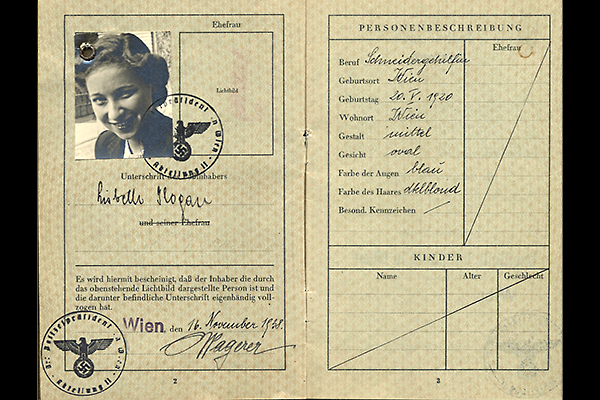 Ehefrau
Lichtbild
Unterschrift des Paßinhabers
und seiner Ehefrau
Es wird hiermit bescheinigt, daß der Inhaber die durch
das obenstehende Lichtbild dargestellte Person ist und
die darunter befindliche Unterschrift eigenhändig voll-
zogen hat.
Wien, den 16. November 1938.
Wagerer
2
PERSONENBESCHREIBUNG
Ehefrau
Beruf Schneidergehilfin
Geburtsort Wien
Geburtstag 20. V. 1920
Wohnort Wien
Gestalt mittel
Gesicht oval
Farbe der Augen blau
Farbe des Haares dklblond
Besond. Kennzeichen
KINDER
Name Alter Geschlecht
3